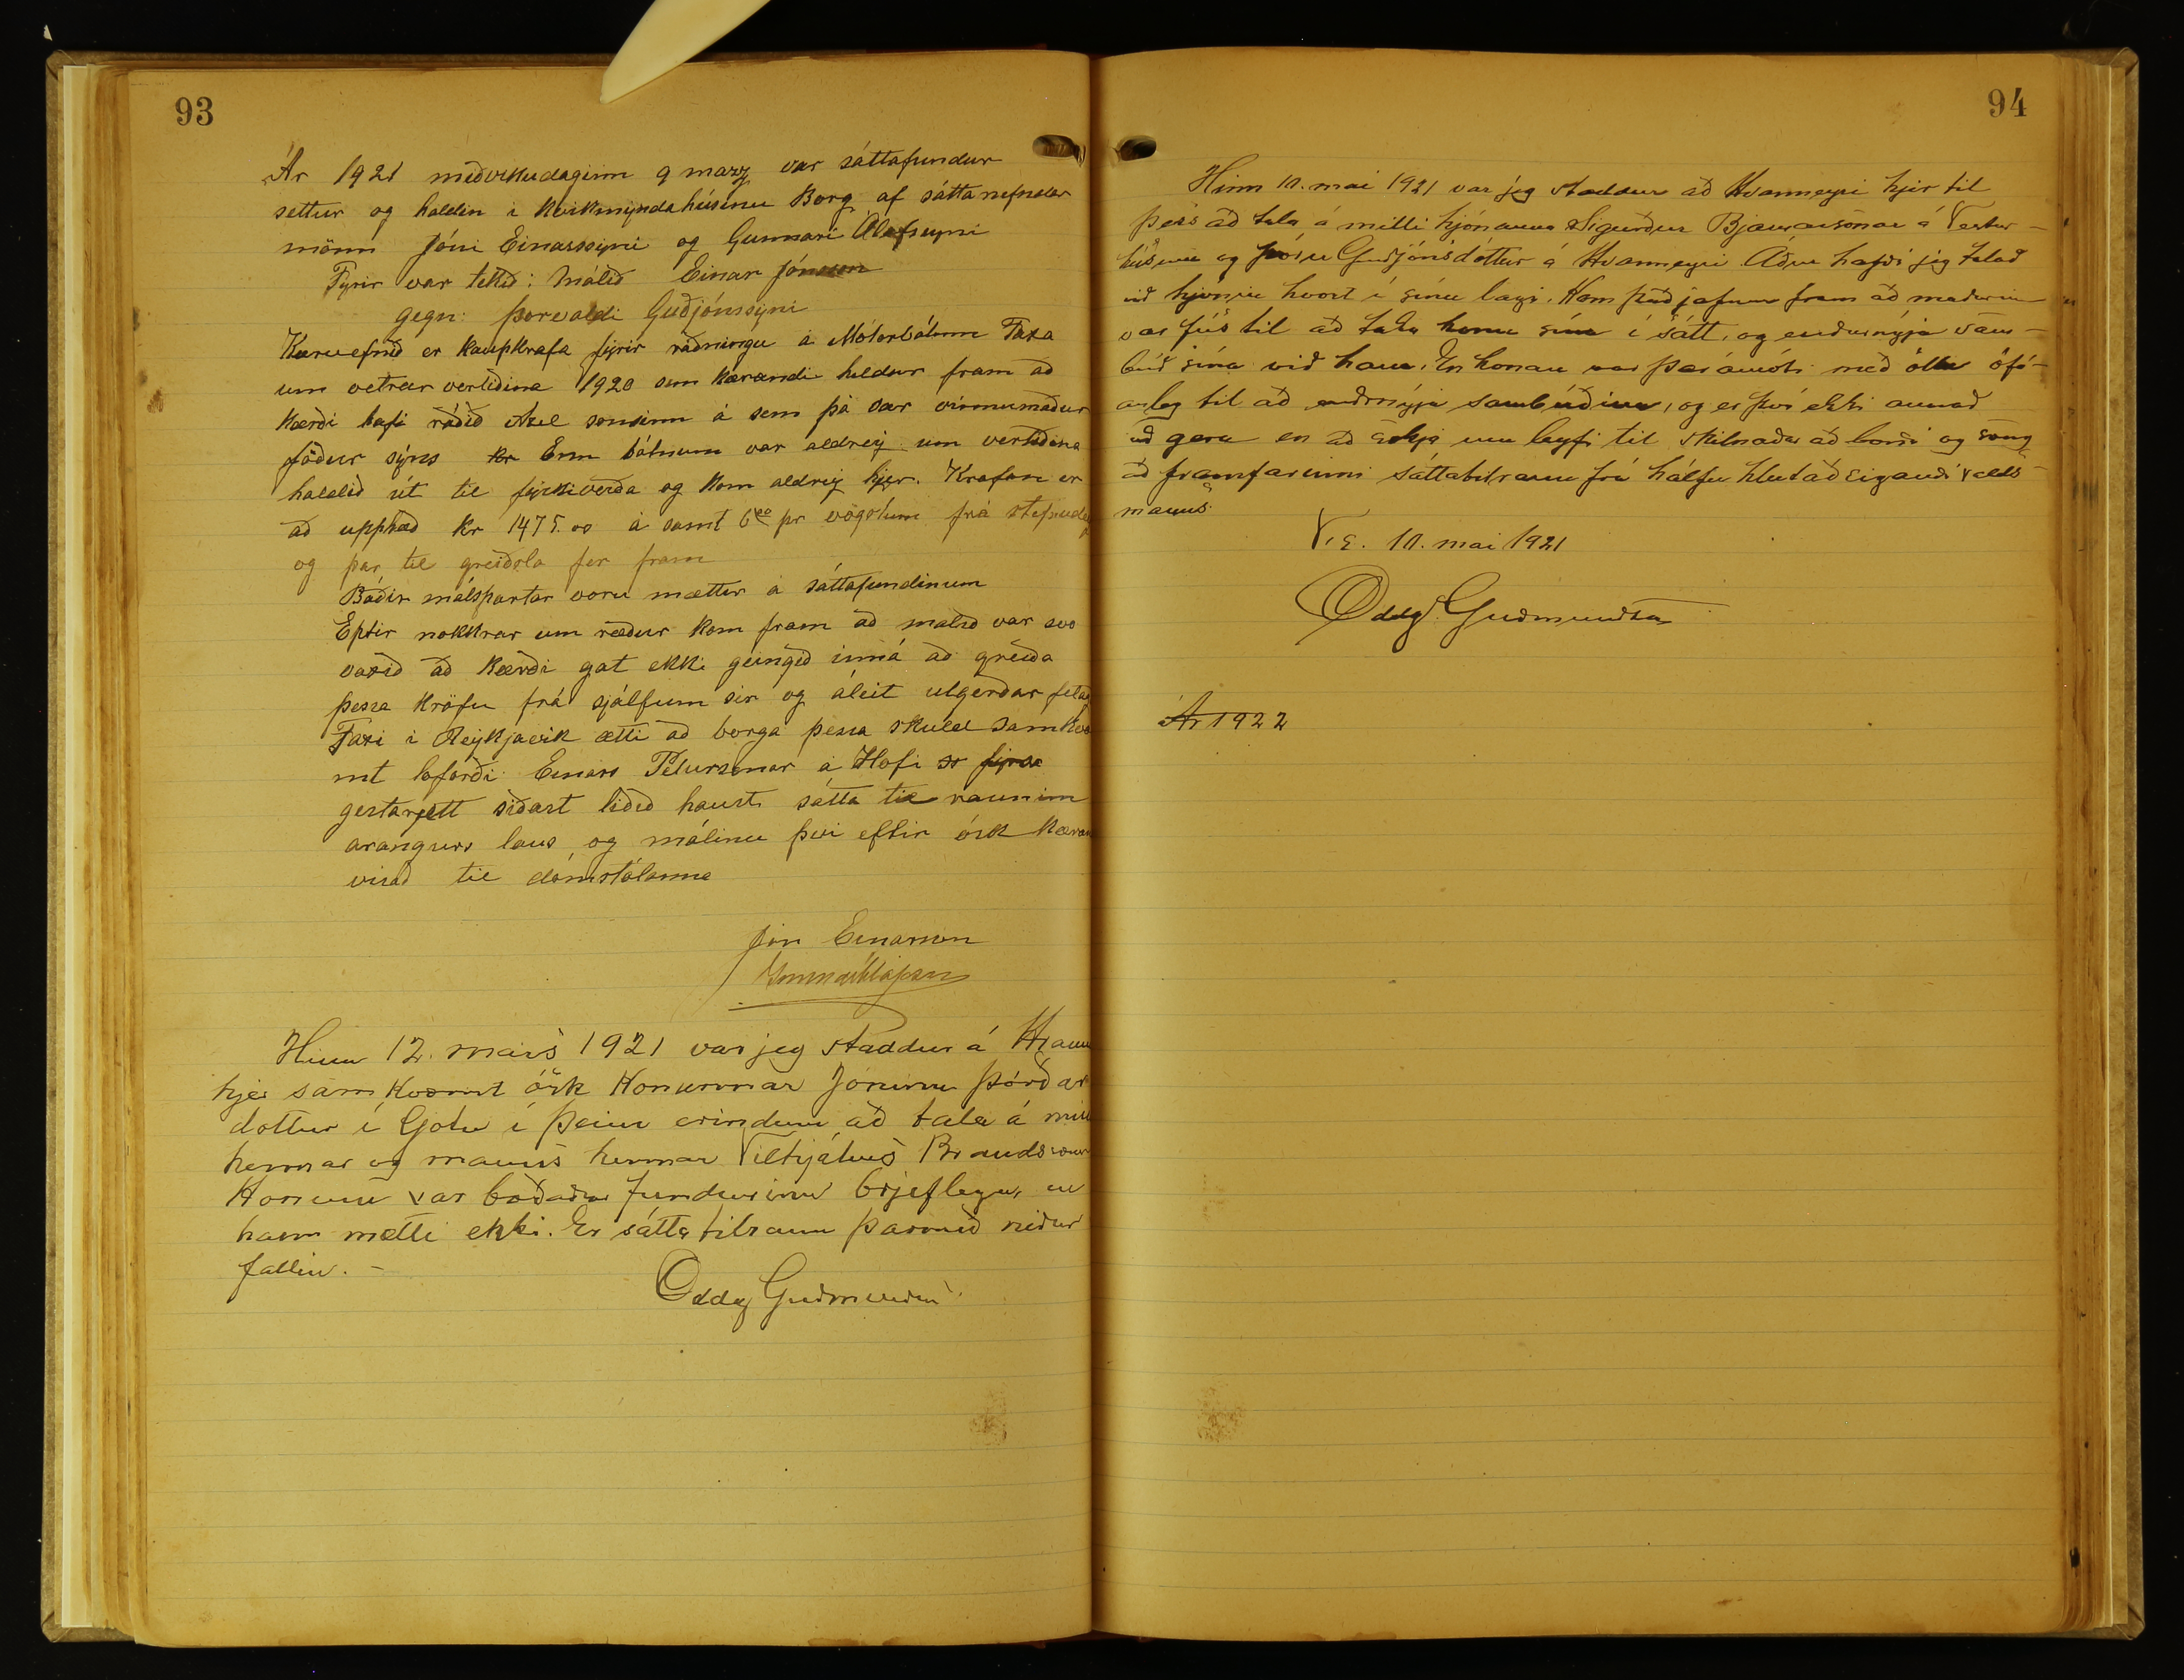 93
Ár 1921 miðvikudaginn 9 marz var sáttafundur
settur og haldin i kvikmyndahúsinu Borg af sáttanefndar
mönn Jóni Einarssyni og Gunnari Ólafssyni
Fyrir var tekið: Málið Einar Jónsson
gegn: Þorvaldi Guðjónssyni
Kæruefnið er kaupkrafa fyrir ráðningu á Mótorbátnum Faxa
um vetrar vertiðina 1920 sem kærandi heldur fram að
kærði hafi ráðið Axel son sinn á sem þá var vinnumaður
föður sýns kr Enn bátnum var aldrei um vertiðina
haldið út til fiskiveiða og kom aldrey hjer. Krafan er
að upphæð kr 1475.00 á samt 6% pr vögstum frá stefnude
og þar til greiðsla fer fram
Báðir málspartar voru mættir á sáttafundinum
Eptir nokkrar um ræður kom fram að malið var svo
vaxið að kærði gat ekki geingið inná að greiða
þessa kröfu frá sjálfum sér og áleit utgerðar felag
Faxi i Reykjavik ætti að borga þessa skuld samkvæ
mt loforði Einars Pétursonar á Hofi sr fyrir
gestarjett siðast liðið haust sátta til raunin
arangurs laus og málinu þvi eftir ósk kæran
visað til dómstólanna
Jón Einarsson
Gunnar Ólafsson
Hinn 12. mars 1921 var jeg staddur á Hraun
hjer samkvæmt ósk konunnar Jóninu Þórðar
dottur í Götu í þeim erindum að tala á mill
hennar og manns hennar Vilhjálms Brandssonar
Honum var boðaður fundurinn brjeflega, en
hann mætti ekki. Er sáttatilraun þarmeð niður
fallin. –
Oddg Guðmundsen
94
Hinn 10. mai 1921 var jeg staddur að Hvanneyri hjer til
þess að tala á milli hjónanna Sigurður Bjarnarsonar á Vestur-
húsum og Þóru Guðjónsdóttur á Hvanneyri Áður hafði jeg talað
við hjónin hvort í sínu lagi. Kom það jafnan fram að maðurinn
var fús til að taka konu sína í sátt, og endurnýja sam-
búð sína við hana. En konan var þar ámóti með öllu ófá-
anleg til að endurnýja sambúðina, og er því ekki annað
að gera en að sækja um leyfi til skilnaðar að borði og sæng
að framfarinni sáttatilraun frá hálfu hlutaðeigandi valds-
manns.
V.E. 10. mai 1921
Oddg. Guðmundsen
Ár 1922